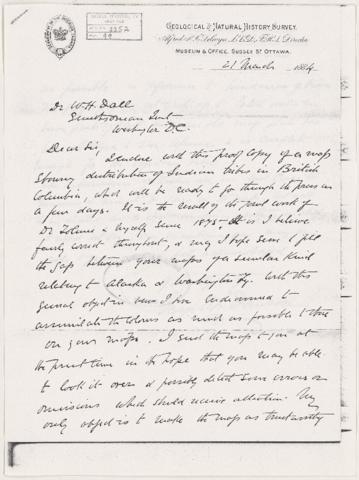 GEOLOGICAL & NATURAL HISTORY SURVEY.
Alfred R. C. Selwyn, L.L.D., F.R.S. Director
MUSEUM & OFFICE, SUSSEX ST. OTTAWA.
21 March 1884
Dr. W. H. Dall
Smithsonian Inst
D.C.
Dear Sir,
I enclose with this proof copy of a map
showing distribution of Indian tribes in British
Columbia, which will be ready to go through the press in
a few days. It is the result of the joint work of
Dr Tolmie & myself since 1875, & is I believe
fairly correct throughout, & may I hope serve to fill
the gap between your maps of a similar kind
relating to Alaska & Washington Ty. With this
general object in view I have endeavoured to
assimilate the colours as much as possible to those
on your maps. I send the map to you at
the present time in the hope that you may be able
to look it over & possibly detect some errors or
omissions which should receive attention. My
only object is to make the map as trustworthy